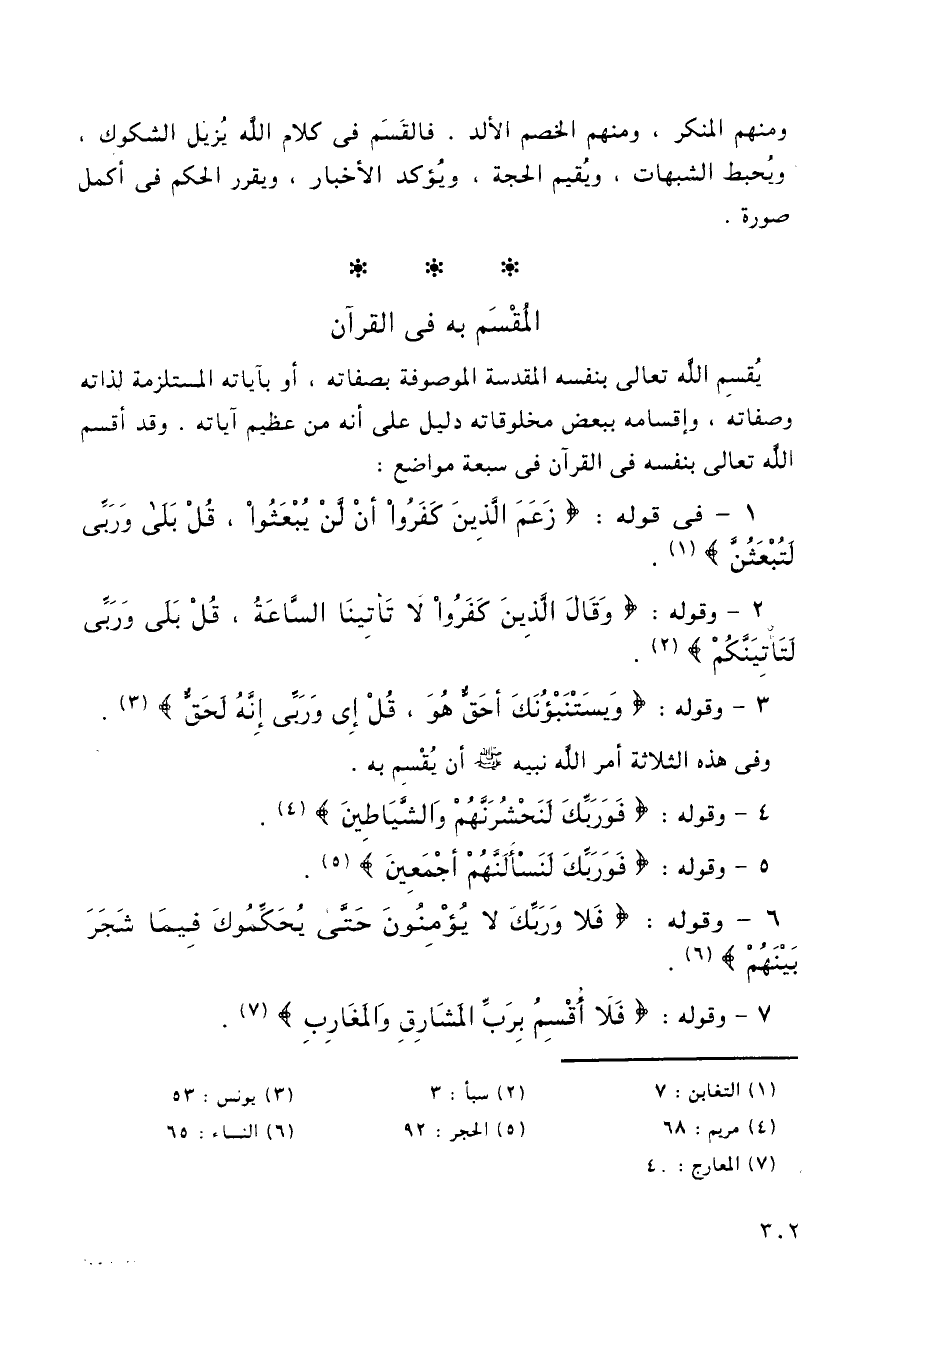 ومنهم المنكر ، ومنهم الخصم الألد . فالقَسَم فى كلام اللَّه يُزيل الشكوك ،
ويُحبط الشبهات ، ويُقيم الحجة ، ويُؤكد الأخبار ، ويقرر الحكم فى أكمل
صورة .
* * *
المُقْسَم به فى القرآن
يُقسِم اللَّه تعالى بنفسه المقدسة الموصوفة بصفاته ، أو بآياته المستلزمة لذاته
وصفاته ، وإقسامه ببعض مخلوقاته دليل على أنه من عظيم آياته . وقد أقسم
اللَّه تعالى بنفسه فى القرآن فى سبعة مواضع :
١ – فى قوله : ﴿ زَعَمَ الَّذِينَ كَفَرُواْ أَنْ لَّنْ يُبْعَثُواْ ، قُلْ بَلَىٰ وَرَبِّى
لَتُبْعَثُنَّ ﴾ (١) .
٢ – وقوله : ﴿ وَقَالَ الَّذِينَ كَفَرُواْ لَا تَأتِينَا السَّاعَةُ ، قُلْ بَلَى وَرَبِّى
لَتَأتِيَنَّكُمْ ﴾ (٢) .
٣ – وقوله : ﴿ وَيَسْتَنْبِؤُنَكَ أَحَقٌّ هُوَ ، قُلْ إِى وَرَبِّى إِنَّهُ لَحَقٌّ ﴾ (٣) .
وفى هذه الثلاثة أمر اللَّه نبيه ﷺ أن يُقْسِم به .
٤ – وقوله : ﴿ فَوَرَبِّكَ لَنَحْشُرَنَّهُمْ وَالشَّيَاطِينَ ﴾ (٤) .
٥ – وقوله : ﴿ فَوَرَبِّكَ لَنَسْأَلَنَّهُمْ أَجْمَعِينَ ﴾ (٥) .
٦ – وقوله : ﴿ فَلا وَرَبِّكَ لا يُؤْمِنُونَ حَتَّى يُحَكِّمُوكَ فِيمَا شَجَرَ
بَيْنَهُمْ ﴾ (٦) .
٧ – وقوله : ﴿ فَلَا أُقْسِمُ بِرَبِّ المَشَارِقِ وَالمَغَارِبِ ﴾ (٧) .
(١) التغابن : ٧ (٢) سبأ : ٣ (٣) يونس : ٥٣
(٤) مريم : ٦٨ (٥) الحجر : ٩٢ (٦) النساء : ٦٥
(٧) المعارج : ٤٠
٣٠٢